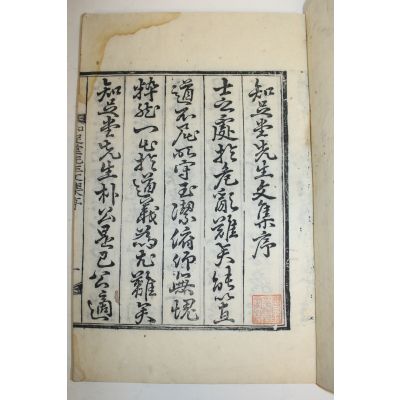 知足堂先生文集序
士之處於危亂難矣能直
道不屈以守玉潔俯仰無愧
粹然一出於道義爲尤難矣
知足堂先生朴公是已公適